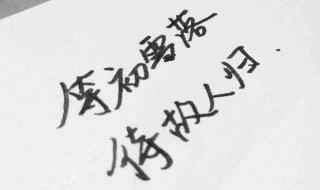 待初雪落
待故人归.